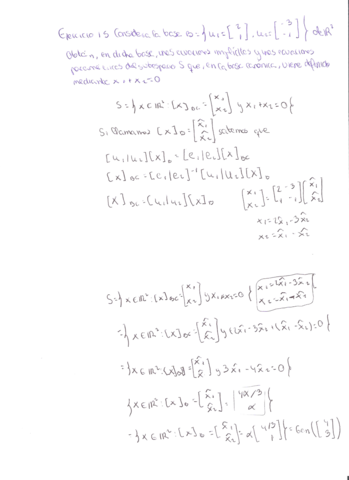 Ejercicio 15 Considera la base B = { u₁ = [2 1], u₂ = [-3 -1] } de ℝ²
Obtén, en dicha base, unas ecuaciones implícitas y unas ecuaciones
paramétricas del subespacio S que, en la base canónica, viene definido
mediante x₁+x₂=0
S = { x ∈ ℝ² : [x]_BC = [x₁ x₂] y x₁+x₂=0 }
Si llamamos [x]_B = [x̂₁ x̂₂] sabemos que
[u₁|u₂][x]_B = [e₁|e₂][x]_BC
[x]_BC = [e₁|e₂]⁻¹ [u₁|u₂][x]_B
[x]_BC = [u₁|u₂][x]_B
[x₁ x₂] = [2 -3 1 -1] [x̂₁ x̂₂]
x₁ = 2x̂₁ - 3x̂₂
x₂ = x̂₁ - x̂₂
S = { x ∈ ℝ² : [x]_BC = [x₁ x₂] y x₁+x₂=0 }
= { x ∈ ℝ² : [x]_BC = [x̂₁ x̂₂] y (2x̂₁ - 3x̂₂ + (x̂₁ - x̂₂) = 0 }
[x̂₁ x̂] y 3x̂₁ - 4x̂₂ = 0 }
{ x ∈ ℝ² : [x]_B = [x̂₁ x̂₂] = [4α/3 α] }
= { x ∈ ℝ² : [x]_B = [x̂₁ x̂₂] = α [4/3 1] } = Gen ( [4 3] )